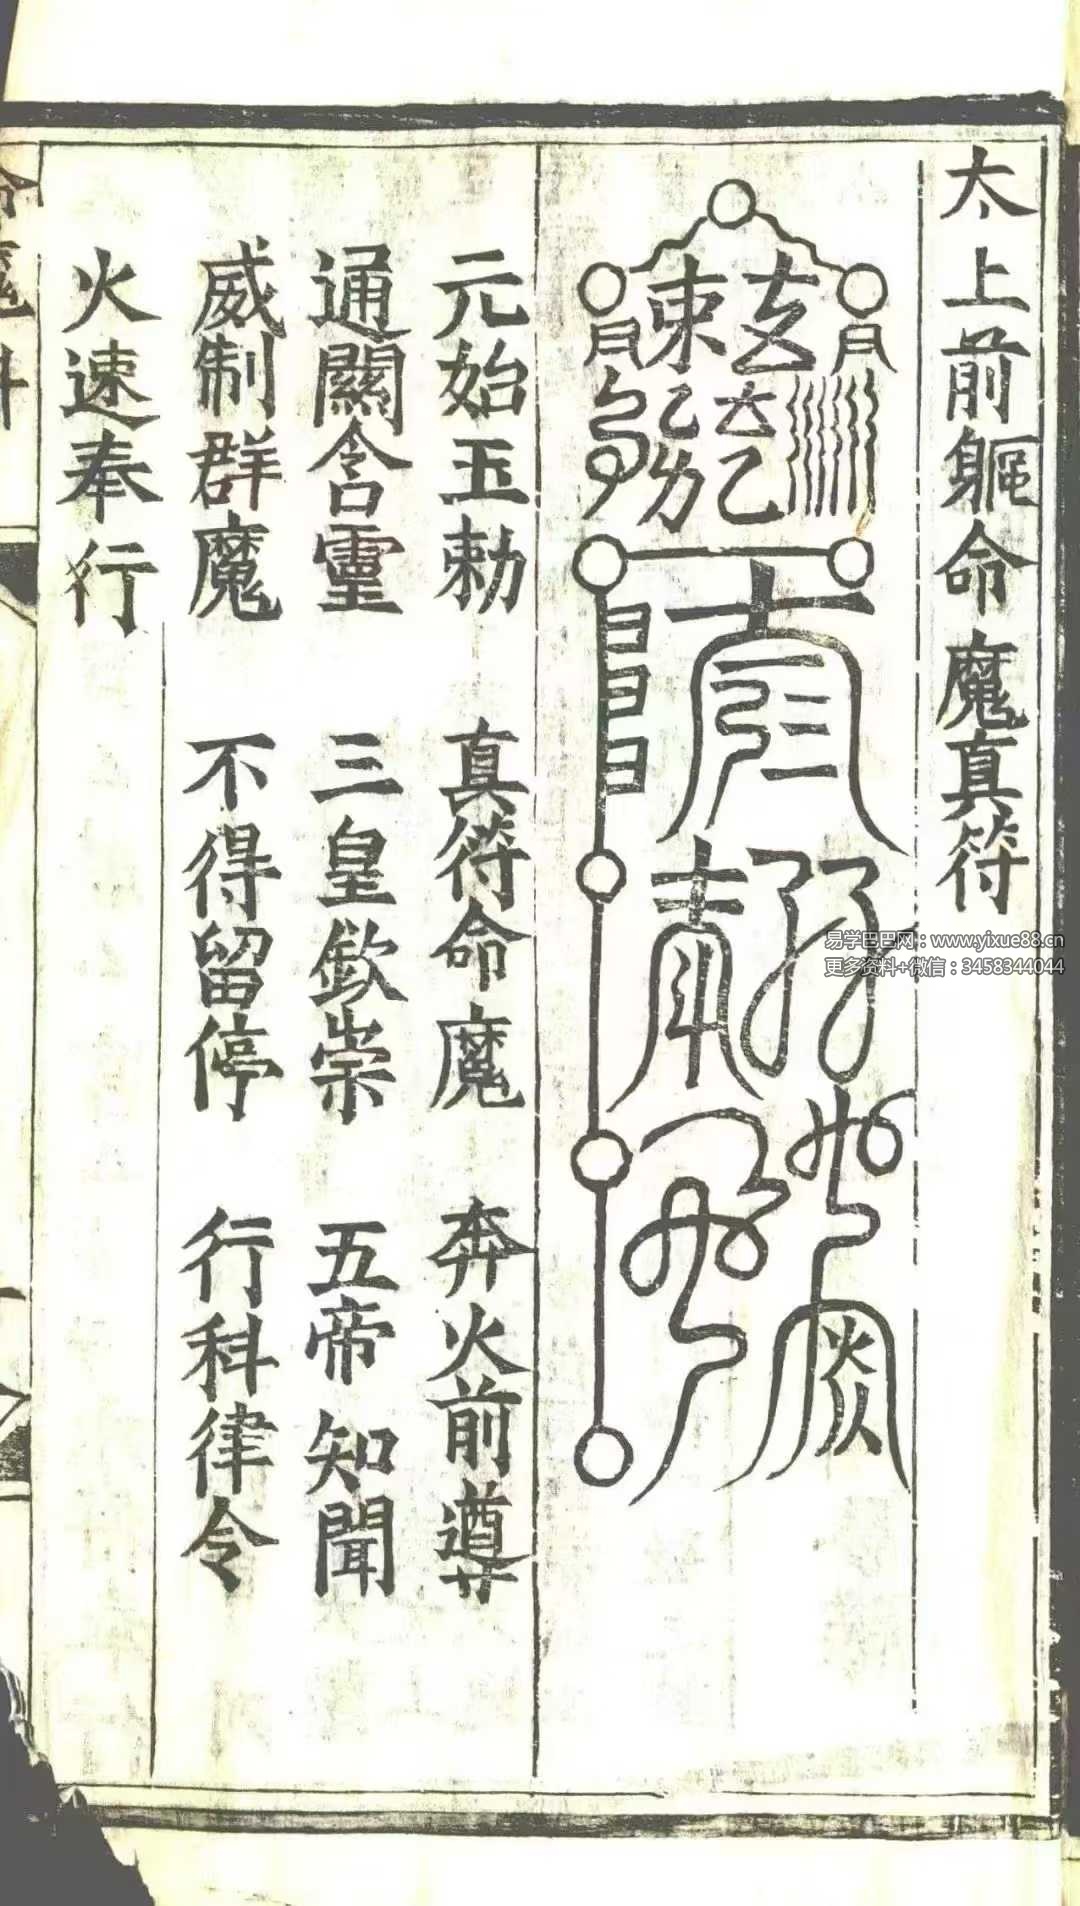 太上前驅命魔真符
元始玉勅 真符命魔 奔火前導
通關含靈 三皇欽崇 五帝知聞
威制群魔 不得留停 行科律令
火速奉行
易学巴巴网：www.yixue88.cn
更多资料+微信：3458344044